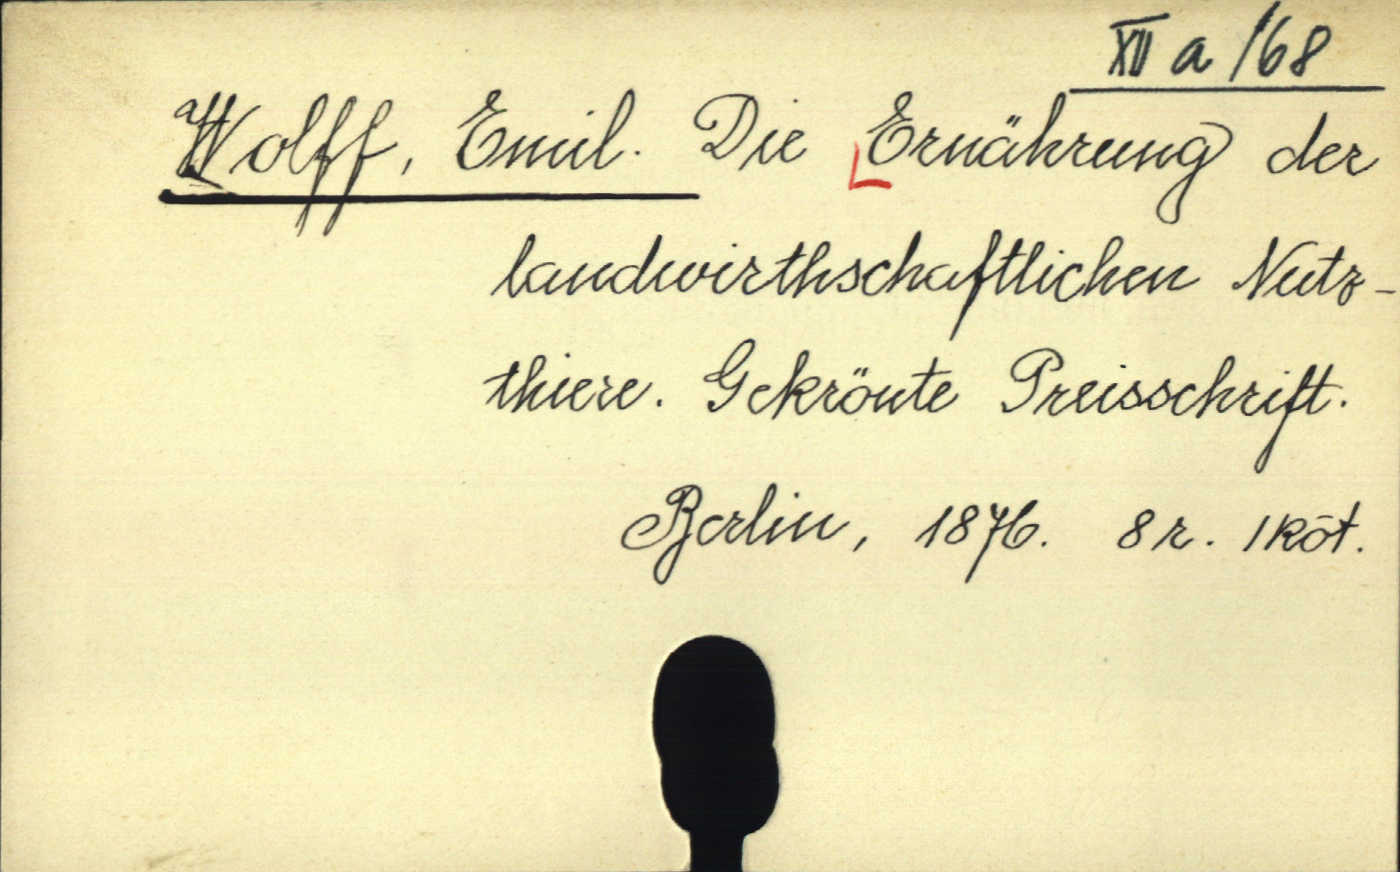 XII a /68
Wolff, Emil. Die Ernährung der
landwirthschaftlichen Nutz-
thiere. Gekrönte Preisschrift.
Berlin, 1876. 8 r. 1 köt.